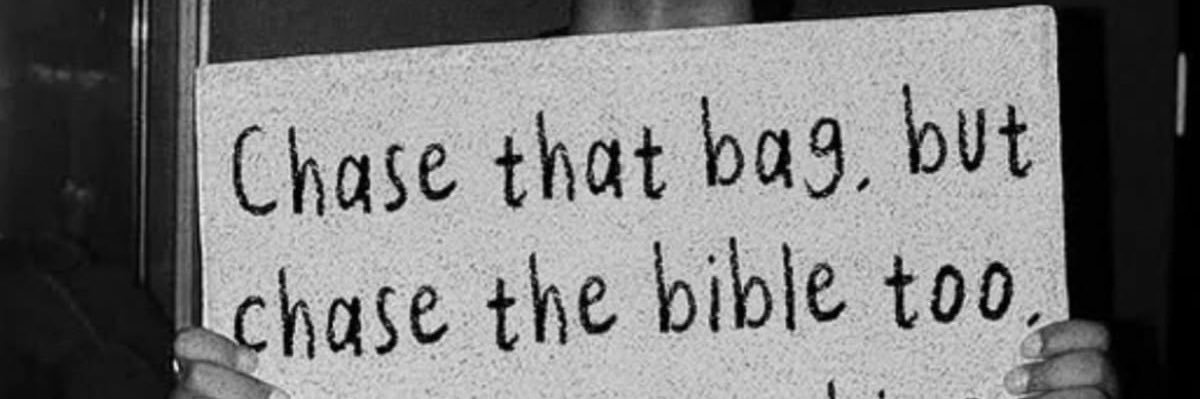 Chase that bag, but
chase the bible too,